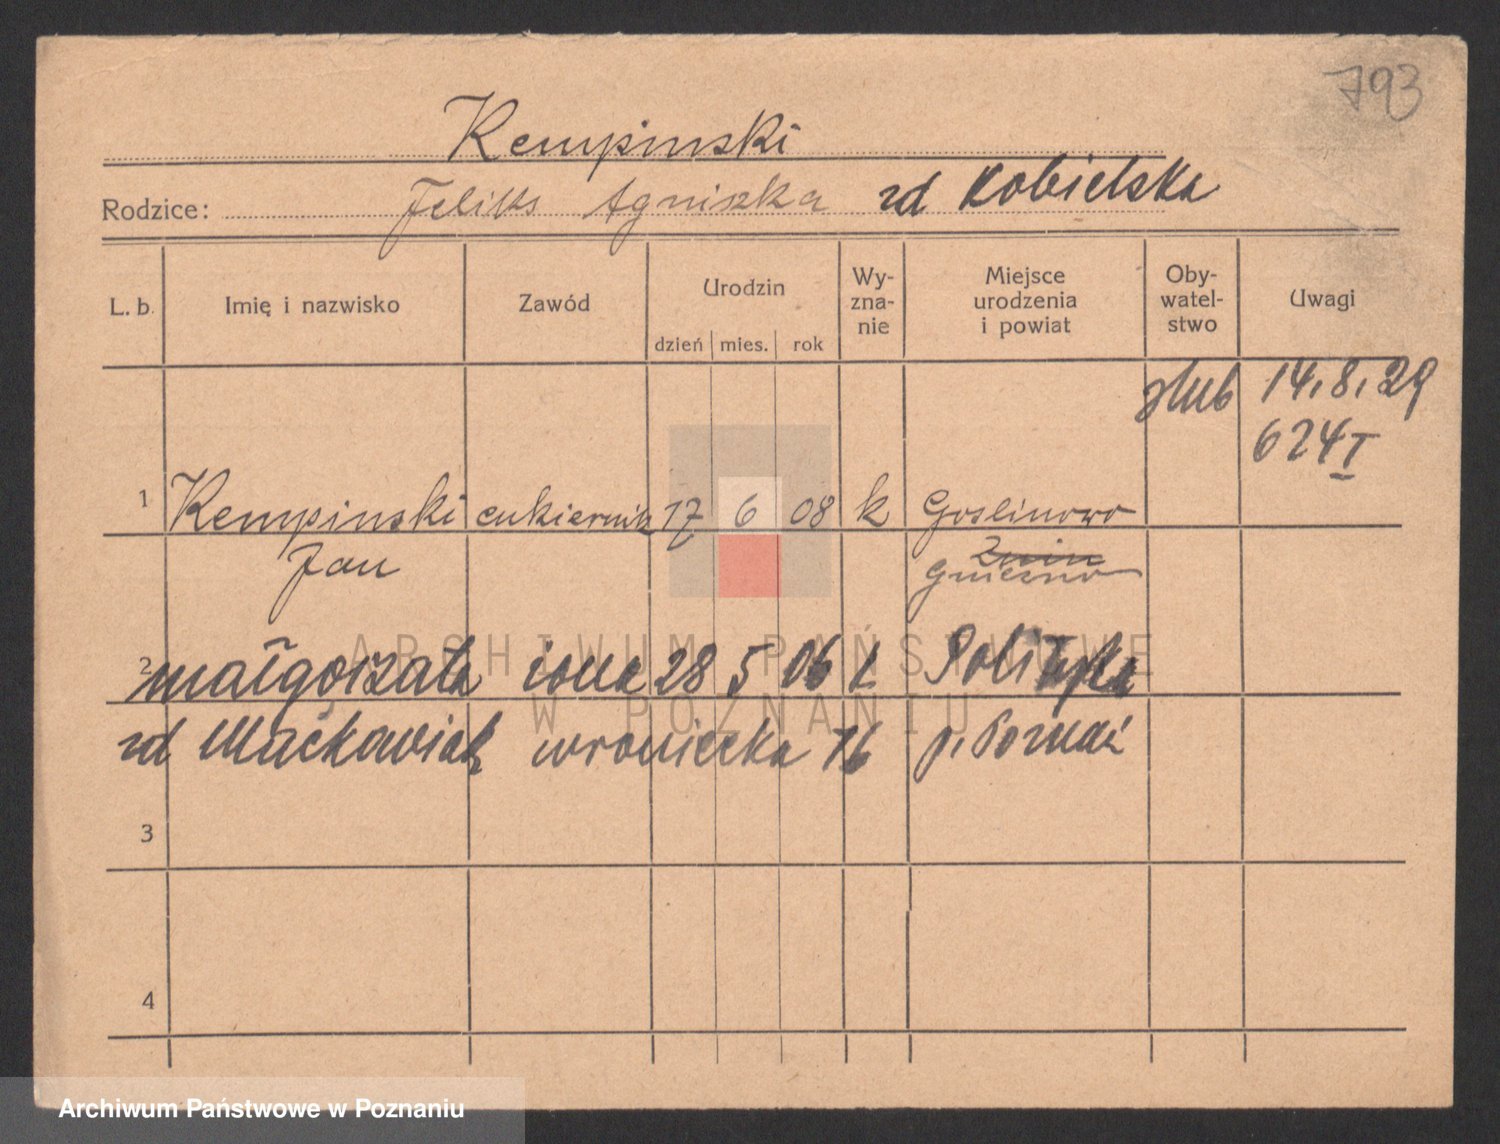 793
Kempinski
Rodzice: Feliks Agniszka zd Kobielska
L. b. Imię i nazwisko Zawód Urodzin dzień mies. rok Wy-zna-nie Miejsce urodzenia i powiat Oby-watel-stwo Uwagi
ślub 14.8.29
624 I
1 Kempinski cukiernik 17 6 08 k Goslinowo
Jan Żnin
Gniezno
2 Małgorzata żona 28 5 06 k
zd Maćkowiak wroniecka 16 p. Poznań
3
4
ARCHIWUM PAŃSTWOWE
W POZNANIU
Archiwum Państwowe w Poznaniu